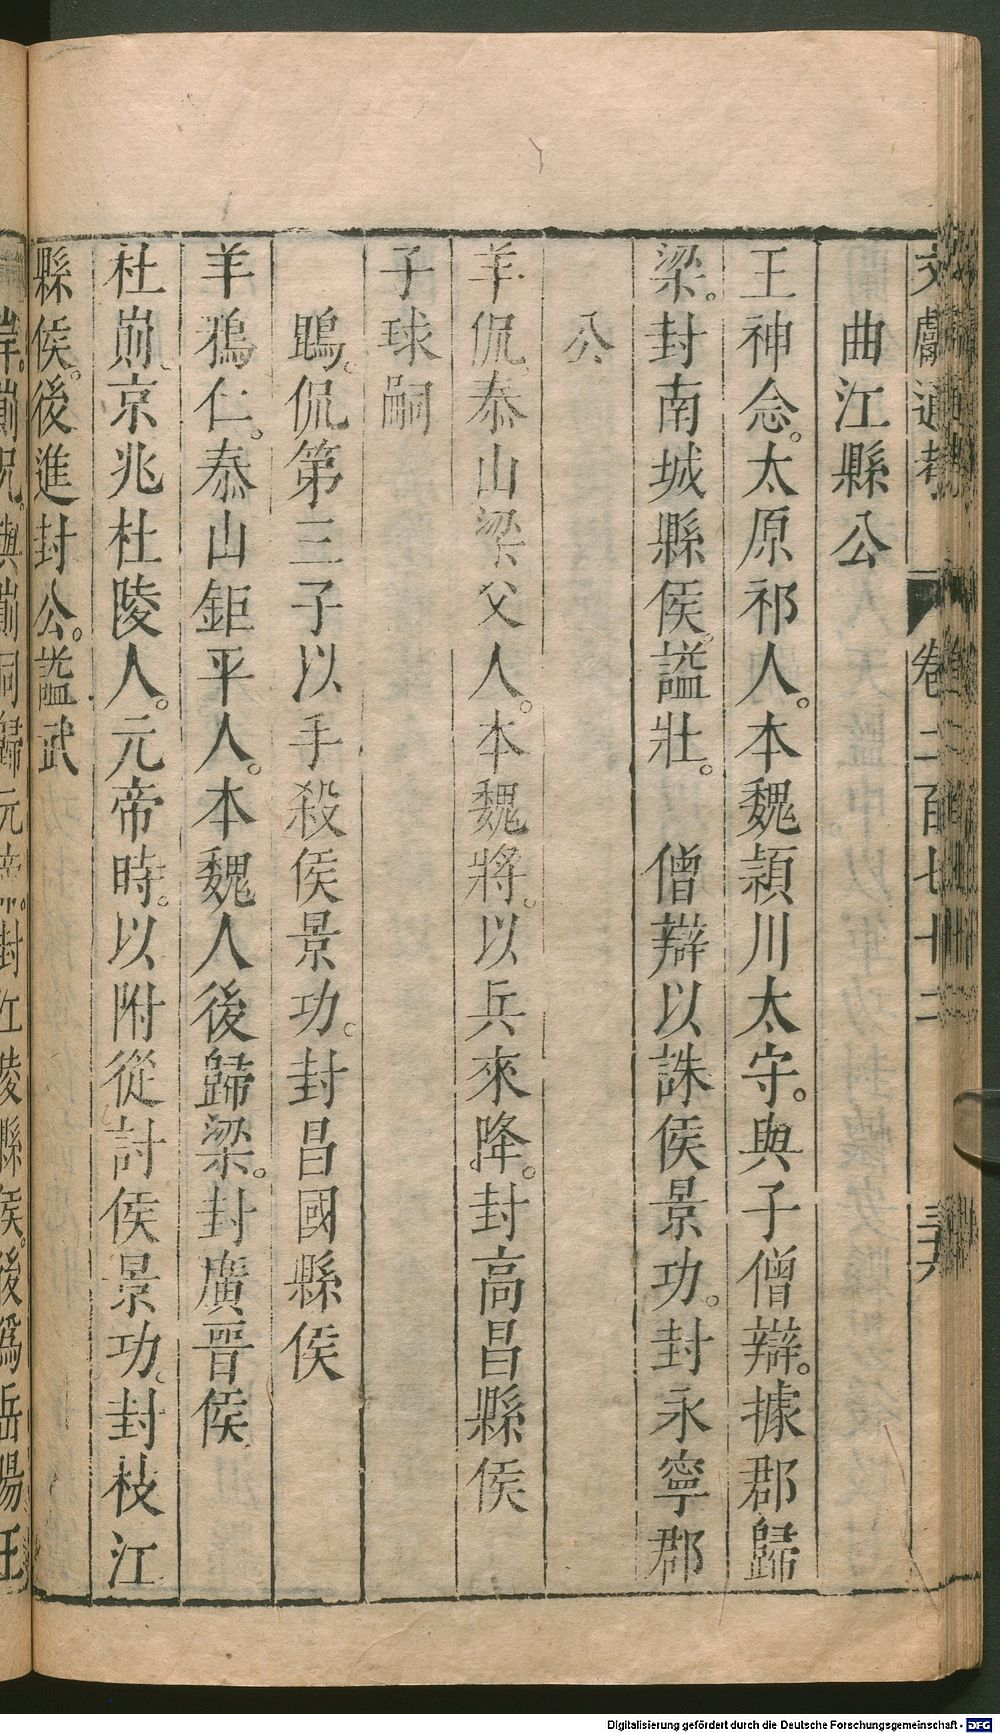 文獻通考 卷二百七十二 三六
曲江縣公
王神念。太原祁人。本魏潁川太守。與子僧辯。據郡歸
梁。封南城縣侯。謚壯。 僧辯以誅侯景功。封永寧郡
公
羊侃。泰山梁父人。本魏將。以兵來降。封高昌縣侯
子球嗣
鵾。侃第三子以手殺侯景功。封昌國縣侯
羊鴉仁。泰山鉅平人。本魏人後歸梁。封廣晉侯
杜崱。京兆杜陵人。元帝時。以附從討侯景功。封枝江
縣侯。後進封公。謚武
岸。崱兄。與崱同歸元帝。封江陵縣侯。後爲岳陽王
Digitalisierung gefördert durch die Deutsche Forschungsgemeinschaft - DFG